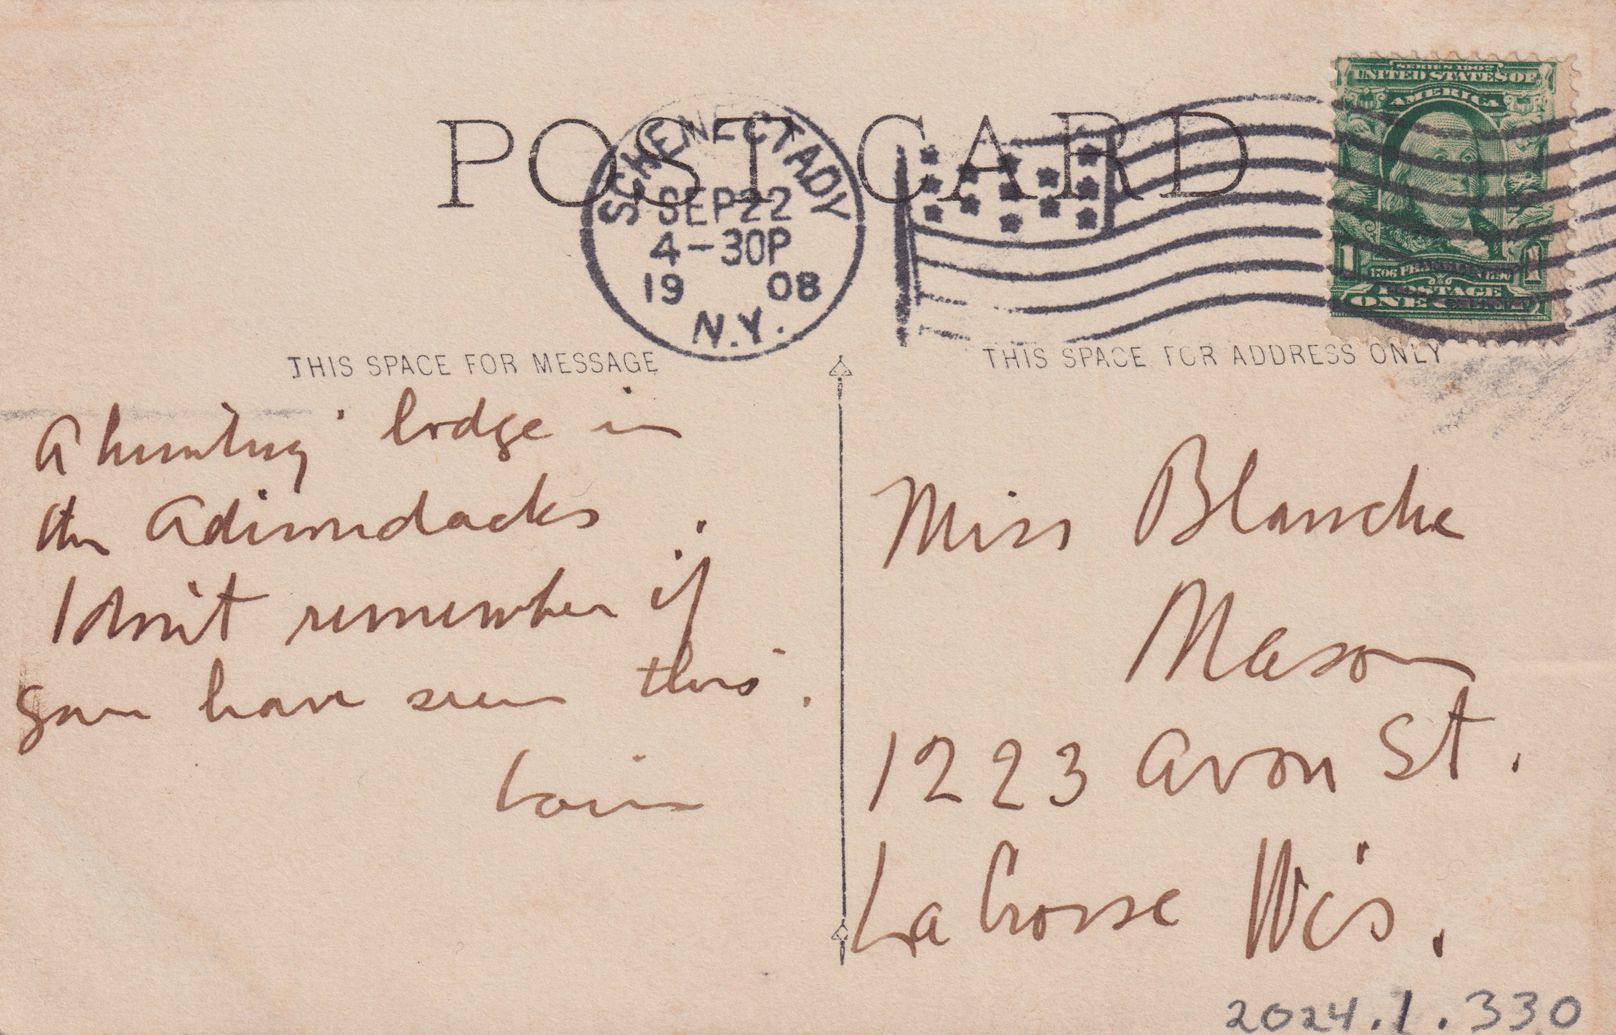 POST CARD
SCHENECTADY
SEP 22
4-30P
1908
N.Y.
SERIES 1902
UNITED STATES OF
AMERICA
1 1706 FRANKLIN 1790 1
POSTAGE
ONE
THIS SPACE FOR MESSAGE
A hunting lodge in
the Adirondacks.
I don't remember if
you have seen this.
THIS SPACE FOR ADDRESS ONLY
Miss Blanche
Mason
1223 Avon St.
La Crosse Wis.
2024.1.330